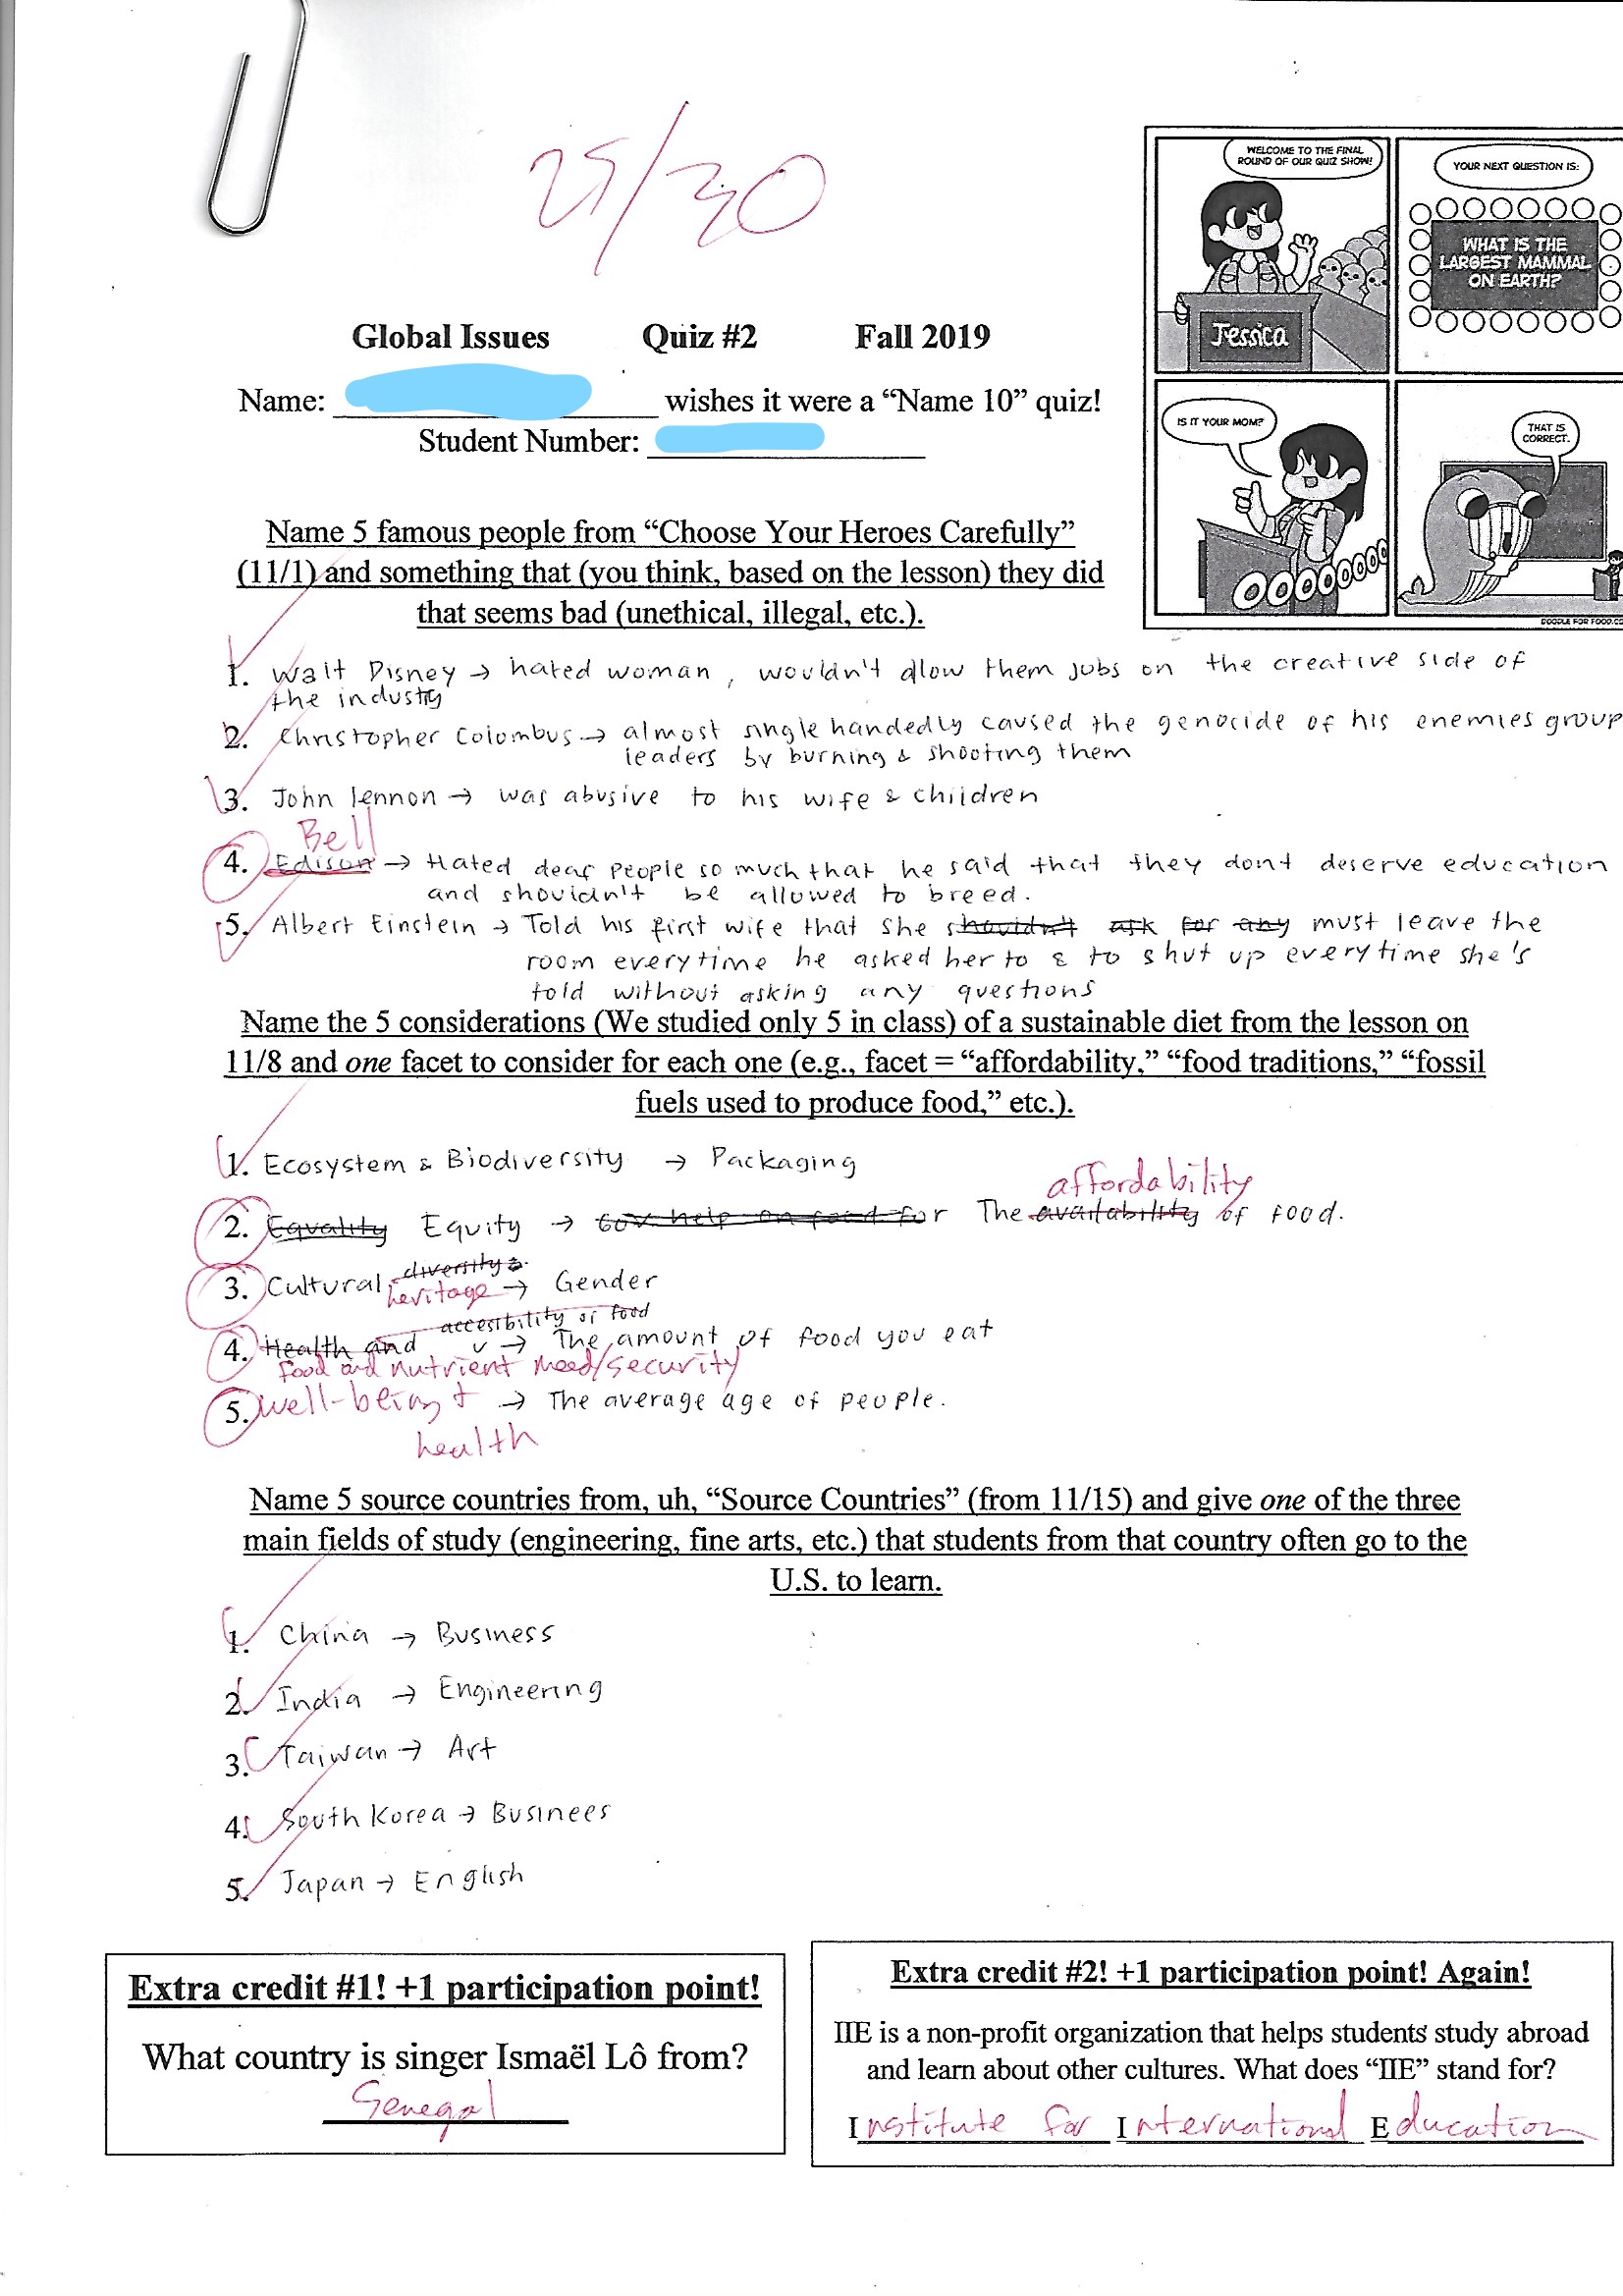 25/30
WELCOME TO THE FINAL
ROUND OF OUR QUIZ SHOW!
Jessica
YOUR NEXT QUESTION IS:
WHAT IS THE
LARGEST MAMMAL
ON EARTH?
IS IT YOUR MOM?
OOOOOOOO
THAT IS
CORRECT.
DOODLE FOR FOOD.CO
Global Issues Quiz #2 Fall 2019
Name: wishes it were a “Name 10” quiz!
Student Number:
Name 5 famous people from “Choose Your Heroes Carefully”
(11/1) and something that (you think, based on the lesson) they did
that seems bad (unethical, illegal, etc.).
1. Walt Disney → hated woman, wouldn't allow them jobs on the creative side of
the industry
2. Christopher Colombus → almost single handedly caused the genocide of his enemies group
leaders by burning & shooting them
3. John lennon → was abusive to his wife & children
Bell
4. Edison → Hated deaf people so much that he said that they dont deserve education
and shouldn't be allowed to breed.
5. Albert Einstein → Told his first wife that she shouldn't ask for any must leave the
room everytime he asked her to & to shut up everytime she's
told without asking any questions
Name the 5 considerations (We studied only 5 in class) of a sustainable diet from the lesson on
11/8 and one facet to consider for each one (e.g., facet = “affordability,” “food traditions,” “fossil
fuels used to produce food,” etc.).
1. Ecosystem & Biodiversity → Packaging
affordability
2. Equality Equity → Gov help on food for The availability of food.
diversity &
3. Cultural heritage → Gender
accesibility of food
4. Health and → The amount of food you eat
food and nutrient need/security
5. well-being + → The average age of people.
health
Name 5 source countries from, uh, “Source Countries” (from 11/15) and give one of the three
main fields of study (engineering, fine arts, etc.) that students from that country often go to the
U.S. to learn.
1. China → Business
2. India → Engineering
3. Taiwan → Art
4. South Korea → Businees
5. Japan → English
Extra credit #1! +1 participation point!
What country is singer Ismaël Lô from?
Senegal
Extra credit #2! +1 participation point! Again!
IIE is a non-profit organization that helps students study abroad
and learn about other cultures. What does “IIE” stand for?
Institute for International Education